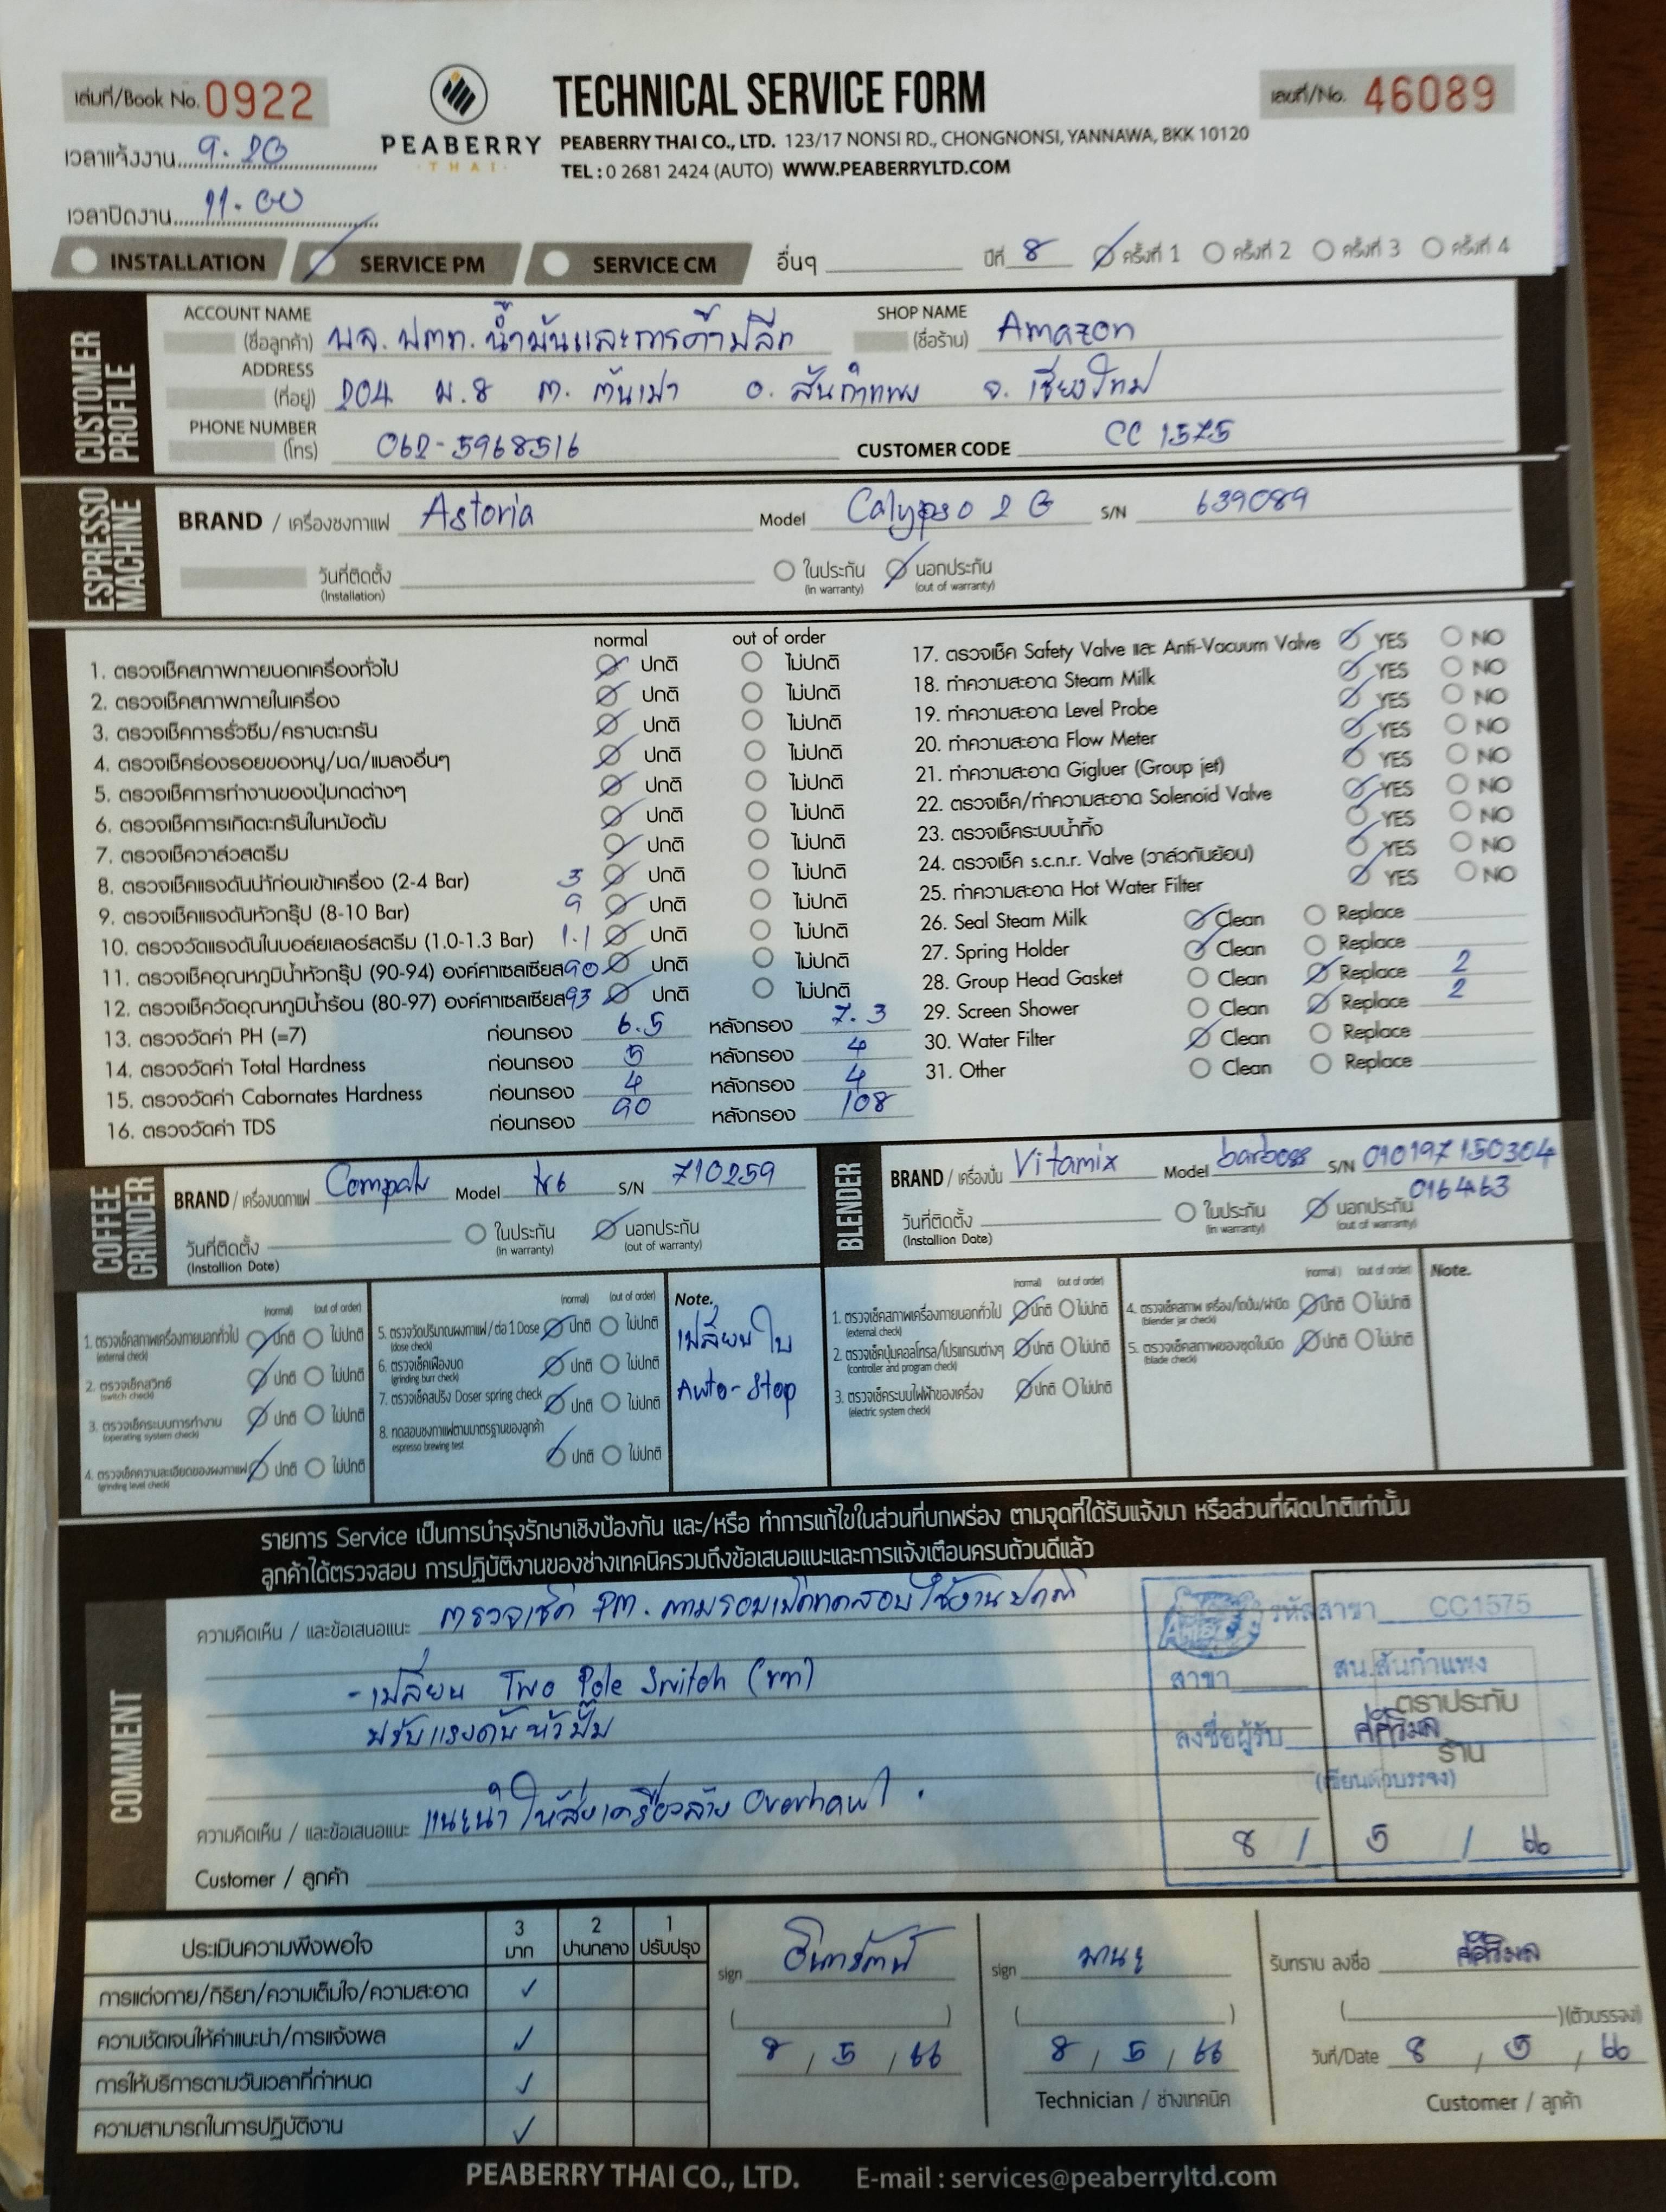 เล่มที่/Book No. 0922
TECHNICAL SERVICE FORM
เลขที่/No. 46089
PEABERRY
THAI
PEABERRY THAI CO., LTD. 123/17 NONSI RD., CHONGNONSI, YANNAWA, BKK 10120
TEL : 0 2681 2424 (AUTO) WWW.PEABERRYLTD.COM
เวลาแจ้งงาน 9.20
เวลาปิดงาน 11.00
INSTALLATION SERVICE PM SERVICE CM อื่นๆ ปีที่ 8 ครั้งที่ 1 ครั้งที่ 2 ครั้งที่ 3 ครั้งที่ 4
CUSTOMER PROFILE
ACCOUNT NAME (ชื่อลูกค้า) บจ. ปตท. น้ำมันและการค้าปลีก SHOP NAME (ชื่อร้าน) Amazon
ADDRESS (ที่อยู่) 204 ม.8 ต. ต้นเปา อ. สันกำแพง จ. เชียงใหม่
PHONE NUMBER (โทร) 062-5968516 CUSTOMER CODE CC 1575
ESPRESSO MACHINE
BRAND / เครื่องชงกาแฟ Astoria Model Calypso 2 G S/N 639089
วันที่ติดตั้ง (Installation) ในประกัน (in warranty) นอกประกัน (out of warranty)
normal out of order
1. ตรวจเช็คสภาพภายนอกเครื่องทั่วไป ปกติ ไม่ปกติ
2. ตรวจเช็คสภาพภายในเครื่อง ปกติ ไม่ปกติ
3. ตรวจเช็คการรั่วซึม/คราบตะกรัน ปกติ ไม่ปกติ
4. ตรวจเช็คร่องรอยของหนู/มด/แมลงอื่นๆ ปกติ ไม่ปกติ
5. ตรวจเช็คการทำงานของปุ่มกดต่างๆ ปกติ ไม่ปกติ
6. ตรวจเช็คการเกิดตะกรันในหม้อต้ม ปกติ ไม่ปกติ
7. ตรวจเช็ควาล์วสตรีม ปกติ ไม่ปกติ
8. ตรวจเช็คแรงดันน้ำก่อนเข้าเครื่อง (2-4 Bar) 3 ปกติ ไม่ปกติ
9. ตรวจเช็คแรงดันหัวกรุ๊ป (8-10 Bar) 9 ปกติ ไม่ปกติ
10. ตรวจวัดแรงดันในบอล์ยเลอร์สตรีม (1.0-1.3 Bar) 1.1 ปกติ ไม่ปกติ
11. ตรวจเช็คอุณหภูมิน้ำหัวกรุ๊ป (90-94) องค์ศาเซลเซียส 90 ปกติ ไม่ปกติ
12. ตรวจเช็ควัดอุณหภูมิน้ำร้อน (80-97) องค์ศาเซลเซียส 93 ปกติ ไม่ปกติ
13. ตรวจวัดค่า PH (=7) ก่อนกรอง 6.5 หลังกรอง 7.3
14. ตรวจวัดค่า Total Hardness ก่อนกรอง 5 หลังกรอง 4
15. ตรวจวัดค่า Cabornates Hardness ก่อนกรอง 4 หลังกรอง 4
16. ตรวจวัดค่า TDS ก่อนกรอง 90 หลังกรอง 108
17. ตรวจเช็ค Safety Valve และ Anti-Vacuum Valve YES NO
18. ทำความสะอาด Steam Milk YES NO
19. ทำความสะอาด Level Probe YES NO
20. ทำความสะอาด Flow Meter YES NO
21. ทำความสะอาด Gigluer (Group jet) YES NO
22. ตรวจเช็ค/ทำความสะอาด Solenoid Valve YES NO
23. ตรวจเช็คระบบน้ำทิ้ง YES NO
24. ตรวจเช็ค s.c.n.r. Valve (วาล์วกันย้อน) YES NO
25. ทำความสะอาด Hot Water Filter YES NO
26. Seal Steam Milk Clean Replace
27. Spring Holder Clean Replace
28. Group Head Gasket Clean Replace 2
29. Screen Shower Clean Replace 2
30. Water Filter Clean Replace
31. Other Clean Replace
COFFEE GRINDER
BRAND / เครื่องบดกาแฟ Compak Model k6 S/N 710259
วันที่ติดตั้ง (Installion Date) ในประกัน (in warranty) นอกประกัน (out of warranty)
BLENDER
BRAND / เครื่องปั่น Vitamix Model barboss S/N 010197150304
016463
วันที่ติดตั้ง (Installion Date) ในประกัน (in warranty) นอกประกัน (out of warranty)
(normal) (out of order)
1. ตรวจเช็คสภาพเครื่องภายนอกทั่วไป (external check) ปกติ ไม่ปกติ
2. ตรวจเช็คสวิทช์ (switch check) ปกติ ไม่ปกติ
3. ตรวจเช็คระบบการทำงาน (operating system check) ปกติ ไม่ปกติ
4. ตรวจเช็คความละเอียดของผงกาแฟ (grinding level check) ปกติ ไม่ปกติ
(normal) (out of order)
5. ตรวจวัดปริมาณผงกาแฟ / ต่อ 1 Dose (dose check) ปกติ ไม่ปกติ
6. ตรวจเช็คเฟืองบด (grinding burr check) ปกติ ไม่ปกติ
7. ตรวจเช็คสปริง Doser spring check ปกติ ไม่ปกติ
8. ทดสอบชงกาแฟตามมาตรฐานของลูกค้า espresso brewing test ปกติ ไม่ปกติ
Note.
เปลี่ยน ใบ
Auto-Stop
(normal) (out of order)
1. ตรวจเช็คสภาพเครื่องภายนอกทั่วไป (external check) ปกติ ไม่ปกติ
2. ตรวจเช็คปุ่มคอลโทรล/โปรแกรมต่างๆ (controller and program check) ปกติ ไม่ปกติ
3. ตรวจเช็คระบบไฟฟ้าของเครื่อง (electric system check) ปกติ ไม่ปกติ
(normal) (out of order)
4. ตรวจเช็คสภาพ เครื่อง/โถปั่น/ฝาปิด (blender jar check) ปกติ ไม่ปกติ
5. ตรวจเช็คสภาพของชุดใบมีด (blade check) ปกติ ไม่ปกติ
Note.
รายการ Service เป็นการบำรุงรักษาเชิงป้องกัน และ/หรือ ทำการแก้ไขในส่วนที่บกพร่อง ตามจุดที่ได้รับแจ้งมา หรือส่วนที่ผิดปกติเท่านั้น
ลูกค้าได้ตรวจสอบ การปฏิบัติงานของช่างเทคนิครวมถึงข้อเสนอแนะและการแจ้งเตือนครบถ้วนดีแล้ว
COMMENT
ความคิดเห็น / และข้อเสนอแนะ ตรวจเช็ค PM. ตามรอบเปิดทดสอบใช้งานปกติ
- เปลี่ยน Two Pole Switch
ปรับแรงดันหัวปั๊ม
ความคิดเห็น / และข้อเสนอแนะ แนะนำให้ส่งเครื่องล้าง Overhaul.
Customer / ลูกค้า
รหัสสาขา CC1575
สาขา สน.สันกำแพง
ตราประทับ
ร้าน
ลงชื่อผู้รับ ศศิวิมล
(เขียนตัวบรรจง)
8 / 5 / 66
ประเมินความพึงพอใจ 3 มาก 2 ปานกลาง 1 ปรับปรุง
การแต่งกาย/กิริยา/ความเต็มใจ/ความสะอาด ✓
ความชัดเจนให้คำแนะนำ/การแจ้งผล ✓
การให้บริการตามวันเวลาที่กำหนด ✓
ความสามารถในการปฏิบัติงาน ✓
sign อินทรัตน์
( )
8 / 5 / 66
sign มานะ
( )
8 / 5 / 66
Technician / ช่างเทคนิค
รับทราบ ลงชื่อ ศศิวิมล
( ) (ตัวบรรจง)
วันที่/Date 8 / 5 / 66
Customer / ลูกค้า
PEABERRY THAI CO., LTD. E-mail : services@peaberryltd.com